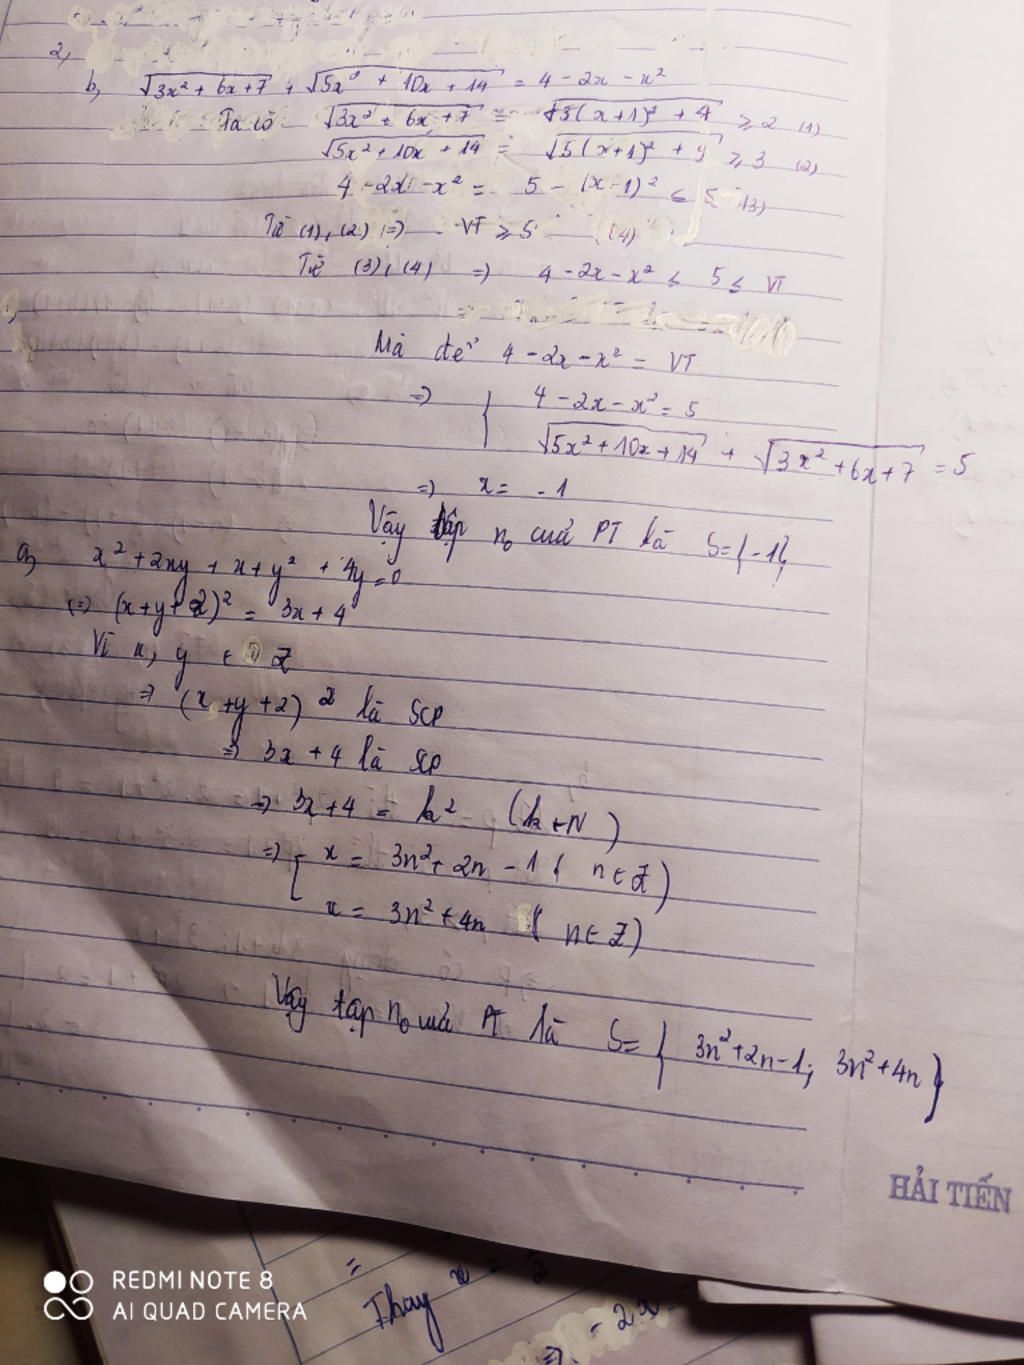 2,
b, √3x² + 6x + 7 + √5x² + 10x + 14 = 4 - 2x - x²
Ta có √3x² + 6x + 7 = √3(x+1)² + 4 ≥ 2 (1)
√5x² + 10x + 14 = √5(x+1)² + 9 ≥ 3 (2)
4 - 2x - x² = 5 - (x-1)² ≤ 5 (3)
Từ (1), (2) => VT ≥ 5 (4)
Từ (3), (4) => 4 - 2x - x² ≤ 5 ≤ VT
Mà để 4 - 2x - x² = VT
=> { 4 - 2x - x² = 5
√5x² + 10x + 14 + √3x² + 6x + 7 = 5
=> x = -1
Vậy tập n₀ của PT là S={-1}
a, x² + 2xy + x + y² + 4y = 0
<=> (x+y+2)² = 3x + 4
Vì x, y ∈ Z
=> (x+y+2)² là SCP
=> 3x + 4 là SCP
=> 3x + 4 = k² (k ∈ N)
=> [ x = 3n² + 2n - 1 ( n ∈ Z)
x = 3n² + 4n ( n ∈ Z)
Vậy tập n₀ của PT là S = { 3n² + 2n - 1; 3n² + 4n }
HẢI TIẾN
=
Thay x =
=> - 2x
REDMI NOTE 8
AI QUAD CAMERA